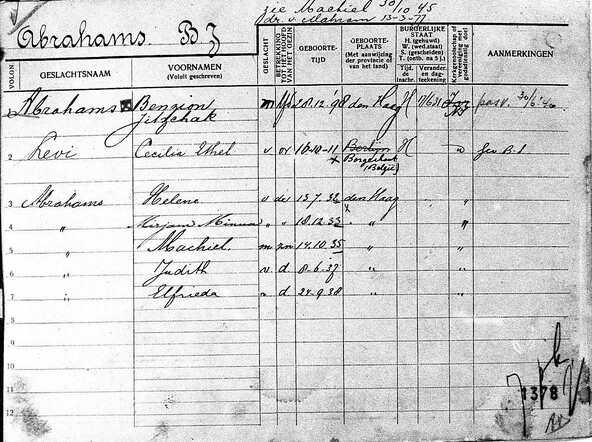 zie Machiel 30/10 45
dr. v. Mahram 13-3-77
Abrahams. B.J.
VOLGNo
GESLACHTSNAAM
VOORNAMEN
(Voluit geschreven)
GESLACHT
BETREKKING TOT HET HOOFD VAN HET GEZIN
GEBOORTE-TIJD
GEBOORTE-PLAATS
(Met aanwijzing der provincie of van het land)
BURGERLIJKE STAAT
H. (gehuwd)
W. (wed. staat)
S. (gescheiden)
T. (ontb. na 5 j.)
Tijd der inschr.
Verand. en dagteekening
Kerkgenootsch. of vereeniging met godsdienstig doel
AANMERKINGEN
Abrahams Benzion Jitschak m hfd 28.12.98 den Haag H
2 Levi Cecilia Ethel v vr 16-10-11 Berlijn Borgerhout (België) H "
3 Abrahams Helene v d 13.7.32 den Haag "
4 " Mirjam Minna " " 18.12.33 " "
5 " Machiel m zn 14.10.35 " "
6 " Judith v d 8-6-37 " "
7 " Elfrieda " d 24-9-38 " "
8
9
10
11
12
1378